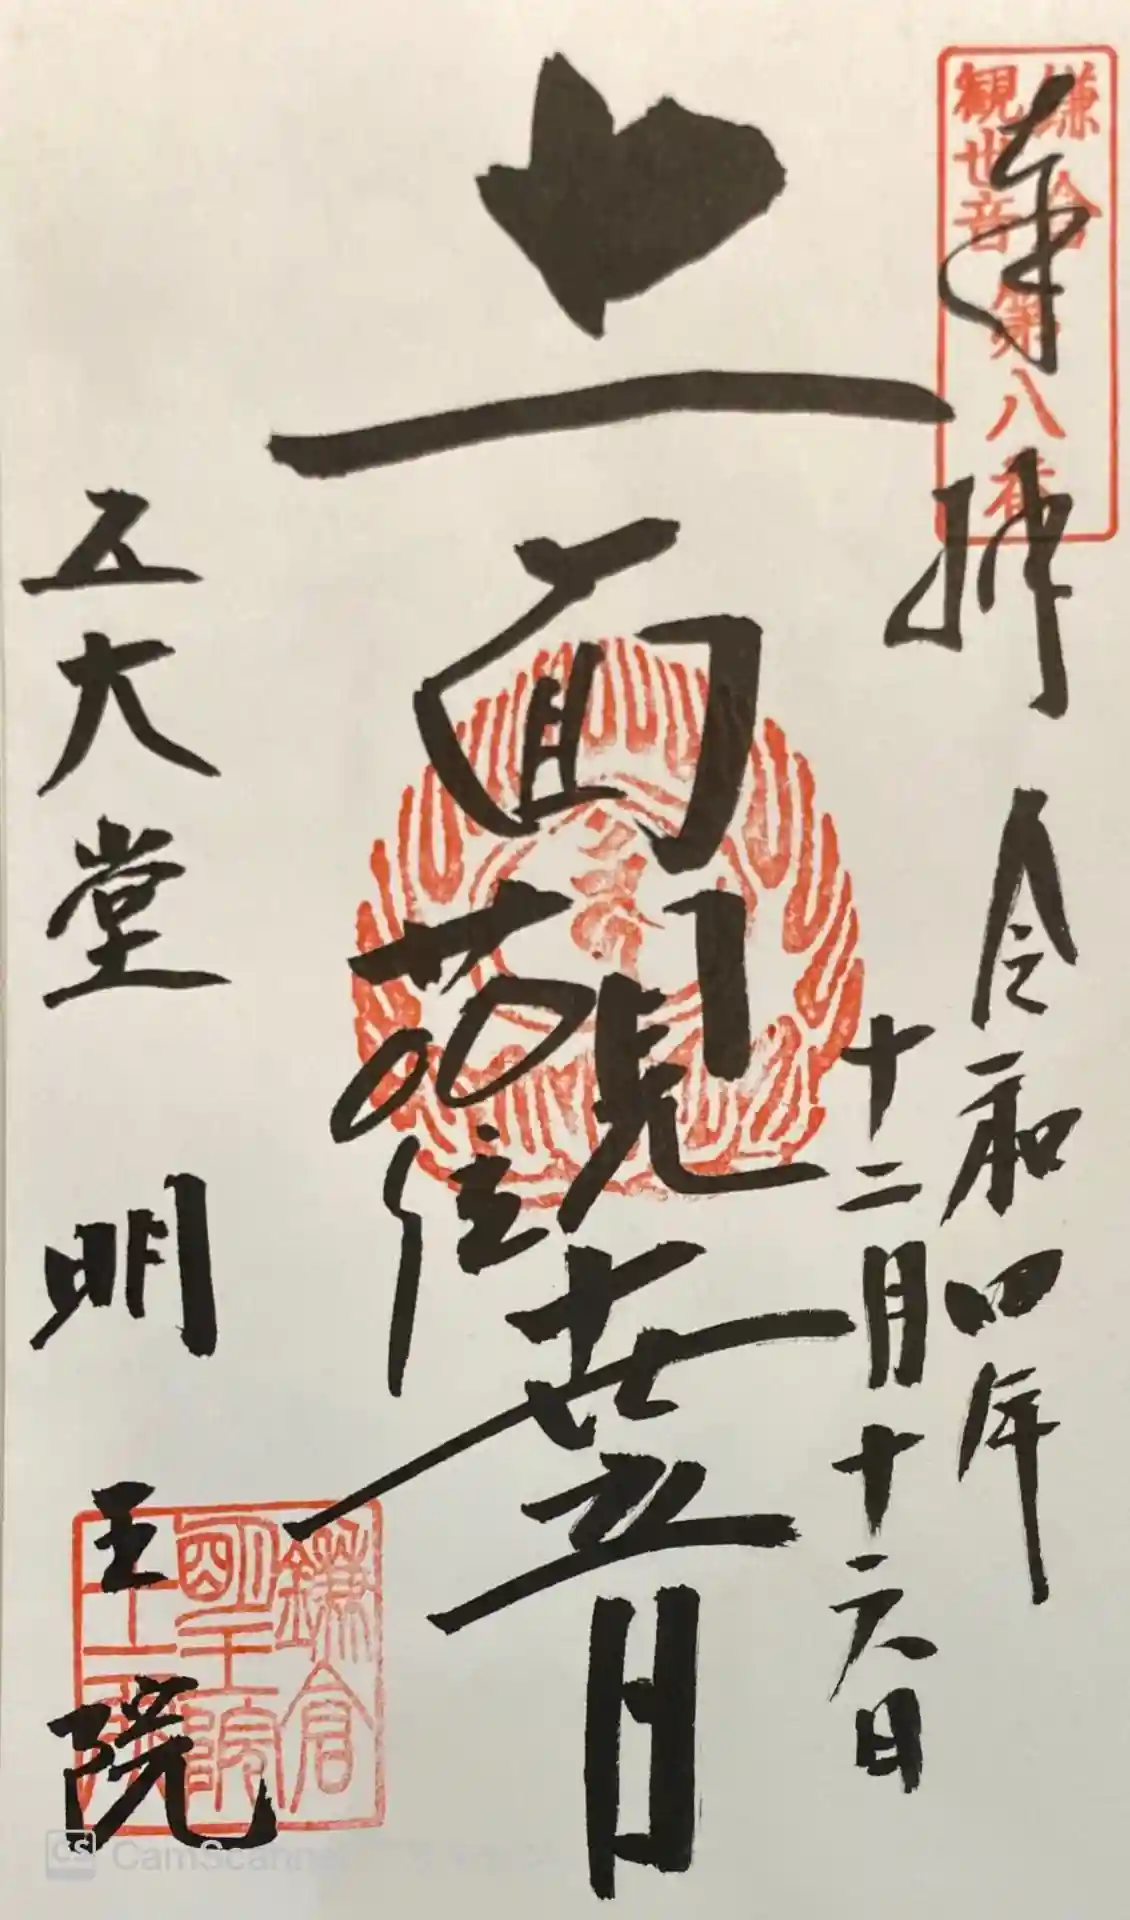 鎌倉
観世音
第八番
奉拝
令和四年
十二月十六日
十一面観世音
五大堂
明王院
鎌倉
明王院
CamScanner